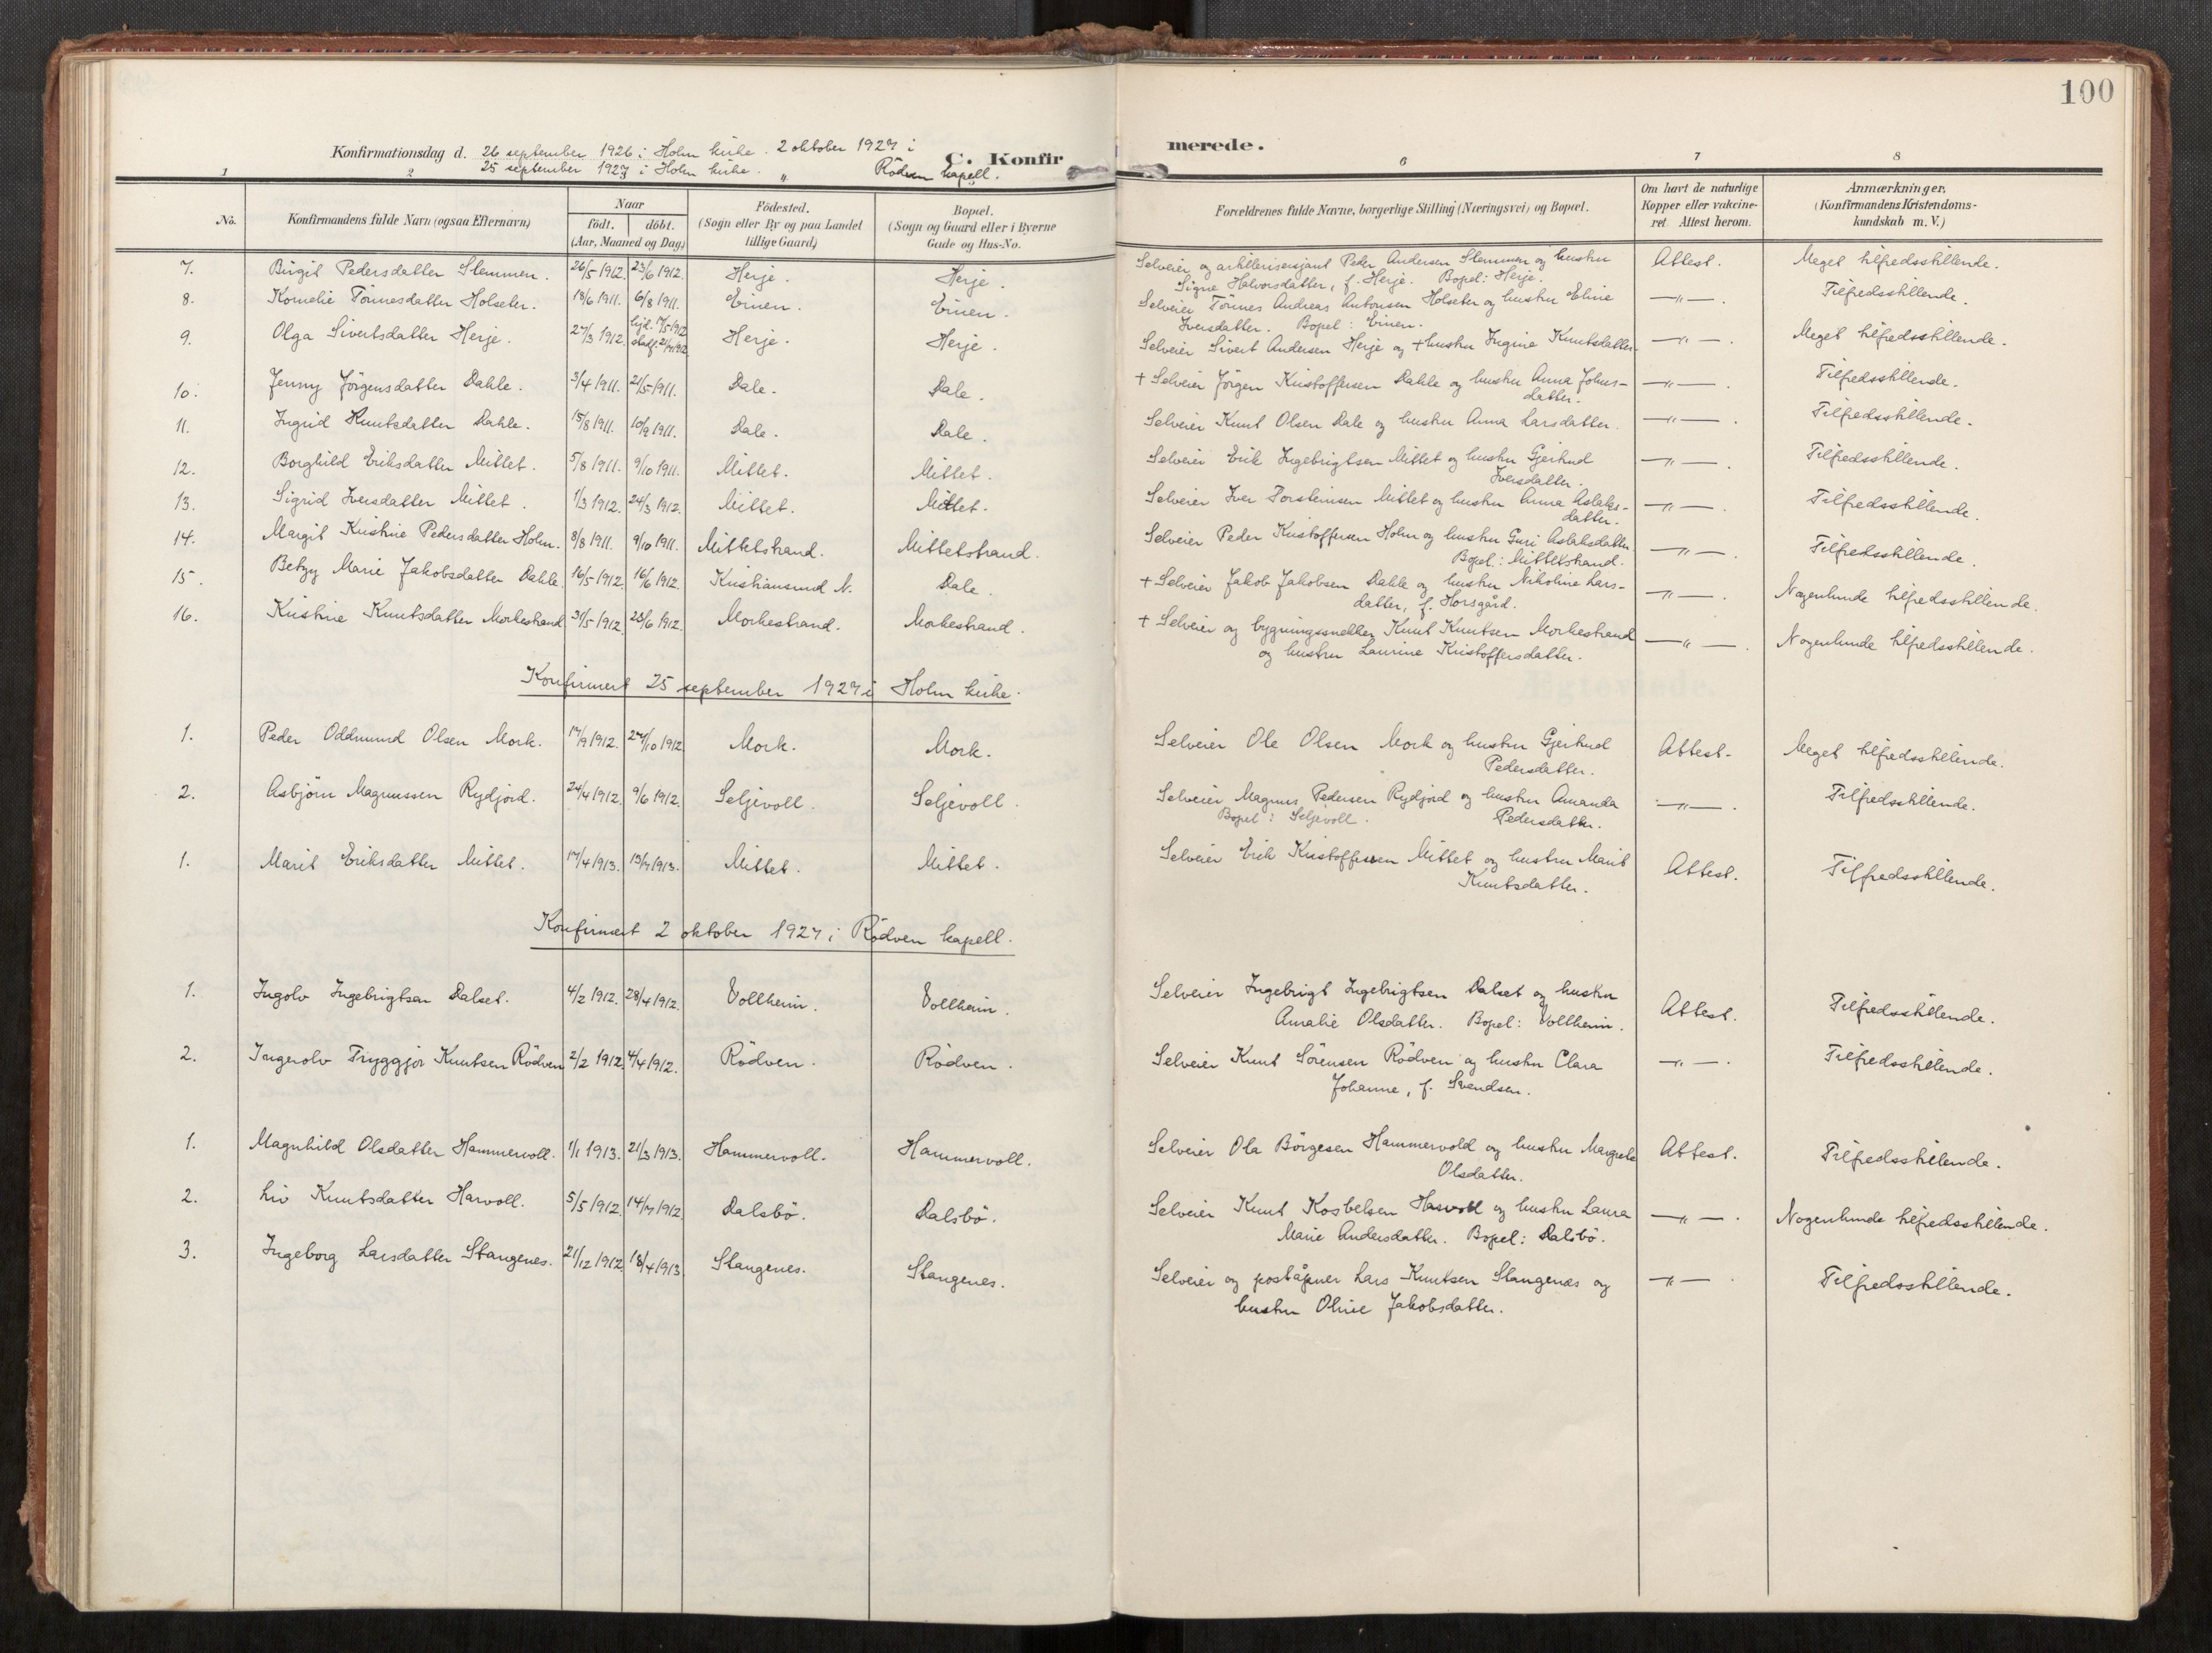 100
Konfirmationsdag d. 26 september 1926 i Holm kirke. 2 oktober 1927 i
25 september 1927 i Holm kirke. " Rödven kapell.
C. Konfirmerede.
1 2 6 7 8
No. Konfirmandens fulde Navn (ogsaa Efternavn) Naar födt. döbt. (Aar, Maaned og Dag) Födested. (Sogn eller By og paa Landet tillige Gaard) Bopæl. (Sogn og Gaard eller i Byerne Gade og Hus-No. Forældrenes fulde Navne, borgerlige Stilling (Næringsvei) og Bopæl. Om havt de naturlige Kopper eller vakcineret. Attest herom. Anmærkninger. (Konfirmandens Kristendomskundskab m. V.)
7. Birgit Pedersdatter Stemmen. 26/5 1912. 23/6 1912. Herje. Herje. Selveier og artillerisersjant Peder Andersen Stemmen og hustru Attest. Meget tilfredsstillende.
Signe Halvorsdatter, f. Herje. Bopel: Herje.
8. Kornelie Tönnesdatter Holseter. 18/6 1911. 6/8 1911. Einen. Einen. Selveier Tönnes Andreas Antonsen Holseter og hustru Eline —"—. Tilfredsstillende.
Iversdatter. Bopel: Einen.
9. Olga Sivertsdatter Herje. 27/3 1912. hjd. 17/5 1912 stadf. 21/7 1912. Herje. Herje. Selveier Sivert Andersen Herje og + hustru Ingine Knutsdatter. —"—. Meget tilfredsstillende.
10. Jenny Jörgensdatter Dahle. 3/4 1911. 21/5 1911. Dale. Dale. + Selveier Jörgen Kristoffersen Dahle og hustru Anna Johns- —"—. Tilfredsstillende.
datter.
11. Ingrid Knutsdatter Dahle. 15/8 1911. 10/9 1911. Dale. Dale. Selveier Knut Olsen Dale og hustru Anna Larsdatter. —"—. Tilfredsstillende.
12. Borghild Eriksdatter Mittet. 5/8 1911. 9/10 1911. Mittet. Mittet. Selveier Erik Ingebrigtsen Mittet og hustru Gjertrud —"—. Tilfredsstillende.
Iversdatter.
13. Sigrid Iversdatter Mittet. 1/3 1912. 24/3 1912. Mittet. Mittet. Selveier Iver Torsteinsen Mittet og hustru Anna Aslaks- —"—. Tilfredsstillende.
datter.
14. Margit Kristine Pedersdatter Holm. 8/8 1911. 9/10 1911. Mittetstrand. Mittetstrand. Selveier Peder Kristoffersen Holm og hustru Guri Aslaksdatter. —"—. Tilfredsstillende.
Bopel: Mittetstrand.
15. Betzy Marie Jakobsdatter Dahle. 16/5 1912. 16/6 1912. Kristiansund N. Dale. + Selveier Jakob Jakobsen Dahle og hustru Nikoline Lars- —"—. Nogenlunde tilfredsstillende.
datter, f. Horsgård.
16. Kristine Knutsdatter Morkestrand 31/5 1912. 23/6 1912. Morkestrand. Morkestrand. + Selveier og bygningssnekker Knut Knutsen Morkestrand —"—. Nogenlunde tilfredsstillende.
og hustru Laurine Kristoffersdatter.
Konfirmert 25 september 1927 i Holm kirke.
1. Peder Oddmund Olsen Mork. 17/9 1912. 27/10 1912. Mork. Mork. Selveier Ole Olsen Mork og hustru Gjertrud Attest. Meget tilfredsstillende.
Pedersdatter.
2. Asbjörn Magnussen Rydjord. 24/4 1912. 9/6 1912. Seljevoll. Seljevoll. Selveier Magnus Pedersen Rydjord og hustru Amanda —"—. Tilfredsstillende.
Bopel: Seljevoll. Pedersdatter.
1. Marit Eriksdatter Mittet. 17/4 1913. 13/7 1913. Mittet. Mittet. Selveier Erik Kristoffersen Mittet og hustru Marit Attest. Tilfredsstillende.
Knutsdatter.
Konfirmert 2 oktober 1927 i Rödven kapell.
1. Ingolv Ingebrigtsen Dalset. 4/2 1912. 28/4 1912. Vollheim. Vollheim. Selveier Ingebrigt Ingebrigtsen Dalset og hustru Attest. Tilfredsstillende.
Amalie Olsdatter. Bopel: Vollheim.
2. Ingerolv Tryggjor Knutsen Rödven 2/2 1912. 4/4 1912. Rödven. Rödven. Selveier Knut Sörensen Rödven og hustru Clara —"—. Tilfredsstillende.
Johanne, f. Svendsen.
1. Magnhild Olsdatter Hammervoll. 1/1 1913. 21/3 1913. Hammervoll. Hammervoll. Selveier Ola Börgesen Hammervold og hustru Margrete Attest. Tilfredsstillende.
Olsdatter.
2. Liv Knutsdatter Harvoll. 5/5 1912. 14/7 1912. Dalsbö. Dalsbö. Selveier Knut Kosbelsen Harvoll og hustru Laura —"—. Nogenlunde tilfredsstillende.
Marie Andersdatter. Bopel: Dalsbö.
3. Ingeborg Larsdatter Stangenes. 21/12 1912. 18/4 1913. Stangenes. Stangenes. Selveier og poståpner Lars Knutsen Stangenes og —"—. Tilfredsstillende.
hustru Oline Jakobsdatter.